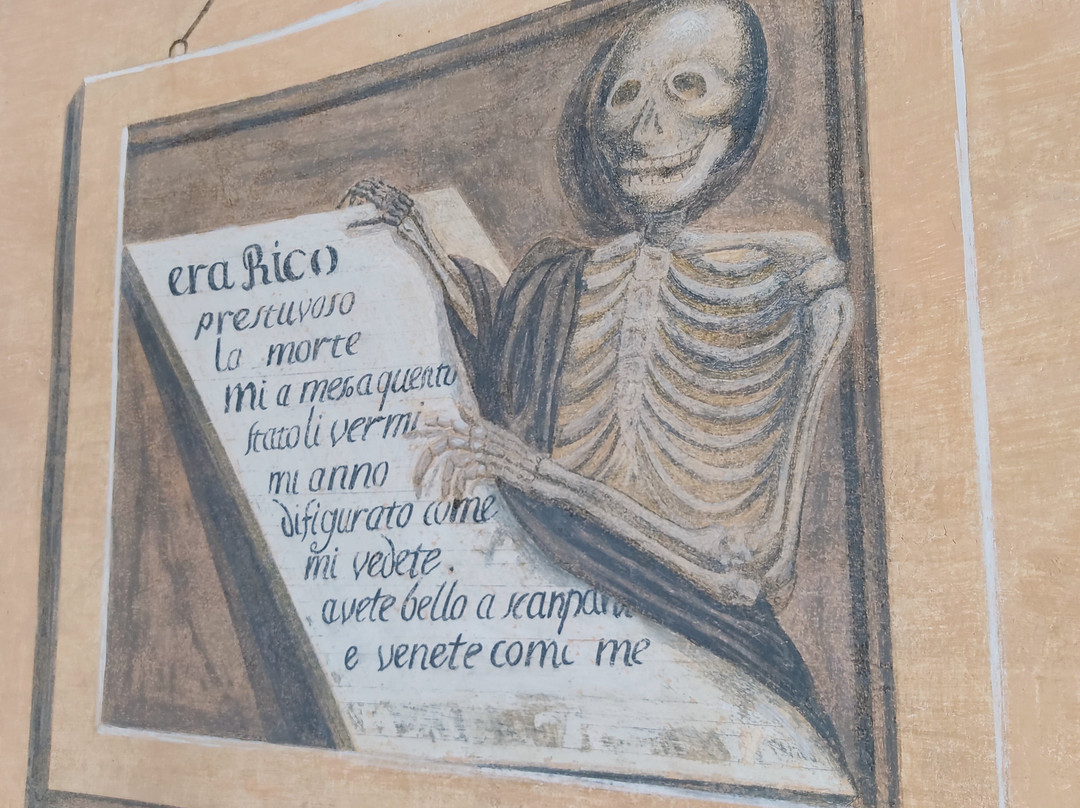 era Rico
prestuvoso
la morte
mi a meso a questo
stato li vermi
mi anno
difigurato come
mi vedete.
avete bello a scanpar
e venete come me